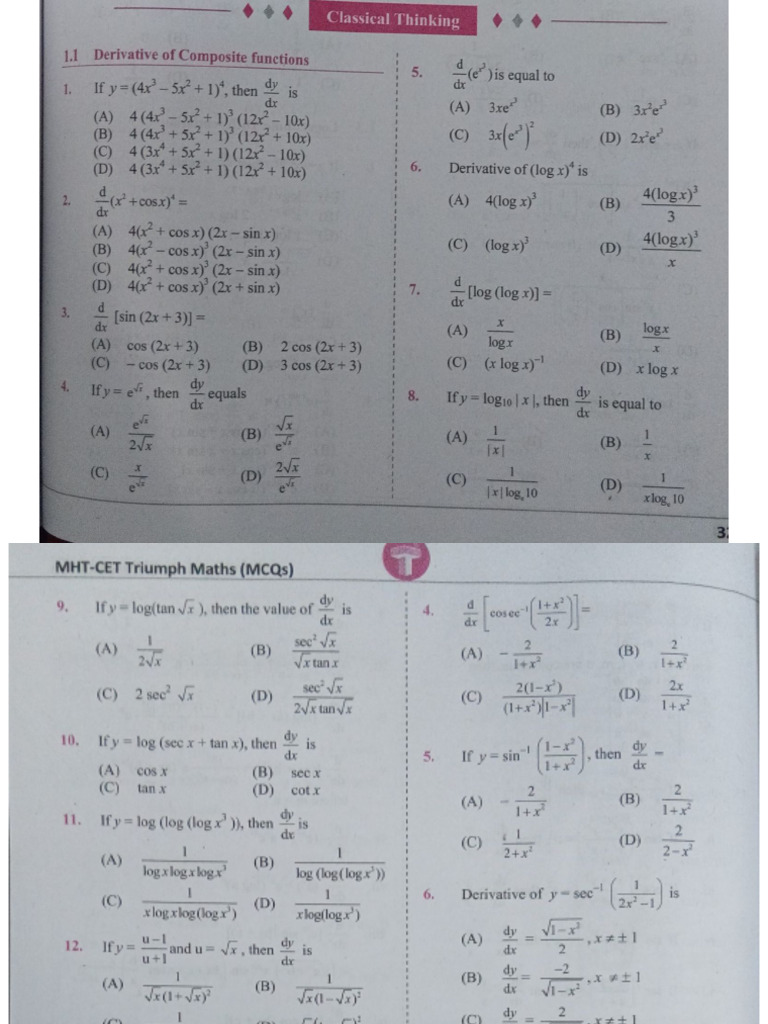 Classical Thinking
1.1 Derivative of Composite functions
1. If y = (4x³ – 5x² + 1)⁴, then dy/dx is
(A) 4 (4x³ – 5x² + 1)³ (12x² – 10x)
(B) 4 (4x³ + 5x² + 1)³ (12x² + 10x)
(C) 4 (3x⁴ + 5x² + 1) (12x² – 10x)
(D) 4 (3x⁴ + 5x² + 1) (12x² + 10x)
2. d/dx (x² + cosx)⁴ =
(A) 4(x² + cos x) (2x – sin x)
(B) 4(x² – cos x)³ (2x – sin x)
(C) 4(x² + cos x)³ (2x – sin x)
(D) 4(x² + cos x)³ (2x + sin x)
3. d/dx [sin (2x + 3)] =
(A) cos (2x + 3) (B) 2 cos (2x + 3)
(C) – cos (2x + 3) (D) 3 cos (2x + 3)
4. If y = e^√x, then dy/dx equals
(A) e^√x/2√x (B) √x/e^√x
(C) x/e^√x (D) 2√x/e^√x
5. d/dx (e^x³) is equal to
(A) 3xe^x³ (B) 3x²e^x³
(C) 3x(e^x³)² (D) 2x²e^x³
6. Derivative of (log x)⁴ is
(A) 4(log x)³ (B) 4(log x)³/3
(C) (log x)³ (D) 4(log x)³/x
7. d/dx [log (log x)] =
(A) x/log x (B) log x/x
(C) (x log x)⁻¹ (D) x log x
8. If y = log₁₀ | x |, then dy/dx is equal to
(A) 1/|x| (B) 1/x
(C) 1/|x| logₑ 10 (D) 1/x logₑ 10
MHT-CET Triumph Maths (MCQs)
T
9. If y = log(tan √x), then the value of dy/dx is
(A) 1/2√x (B) sec² √x/√x tan x
(C) 2 sec² √x (D) sec² √x/2√x tan√x
10. If y = log (sec x + tan x), then dy/dx is
(A) cos x (B) sec x
(C) tan x (D) cot x
11. If y = log (log (log x³)), then dy/dx is
(A) 1/log x log x log x³ (B) 1/log (log (log x³))
(C) 1/x log x log(log x³) (D) 1/x log(log x³)
12. If y = u–1/u+1 and u = √x, then dy/dx is
(A) 1/√x(1+√x)² (B) 1/√x(1–√x)²
4. d/dx [cosec⁻¹ (1+x²/2x)] =
(A) – 2/1+x² (B) 2/1+x²
(C) 2(1–x²)/(1+x²)|1–x²| (D) 2x/1+x²
5. If y = sin⁻¹ (1–x²/1+x²), then dy/dx =
(A) – 2/1+x² (B) 2/1+x²
(C) 1/2+x² (D) 2/2–x²
6. Derivative of y = sec⁻¹ (1/2x²–1) is
(A) dy/dx = √1–x²/2, x ≠ ± 1
(B) dy/dx = –2/√1–x², x ≠ ± 1